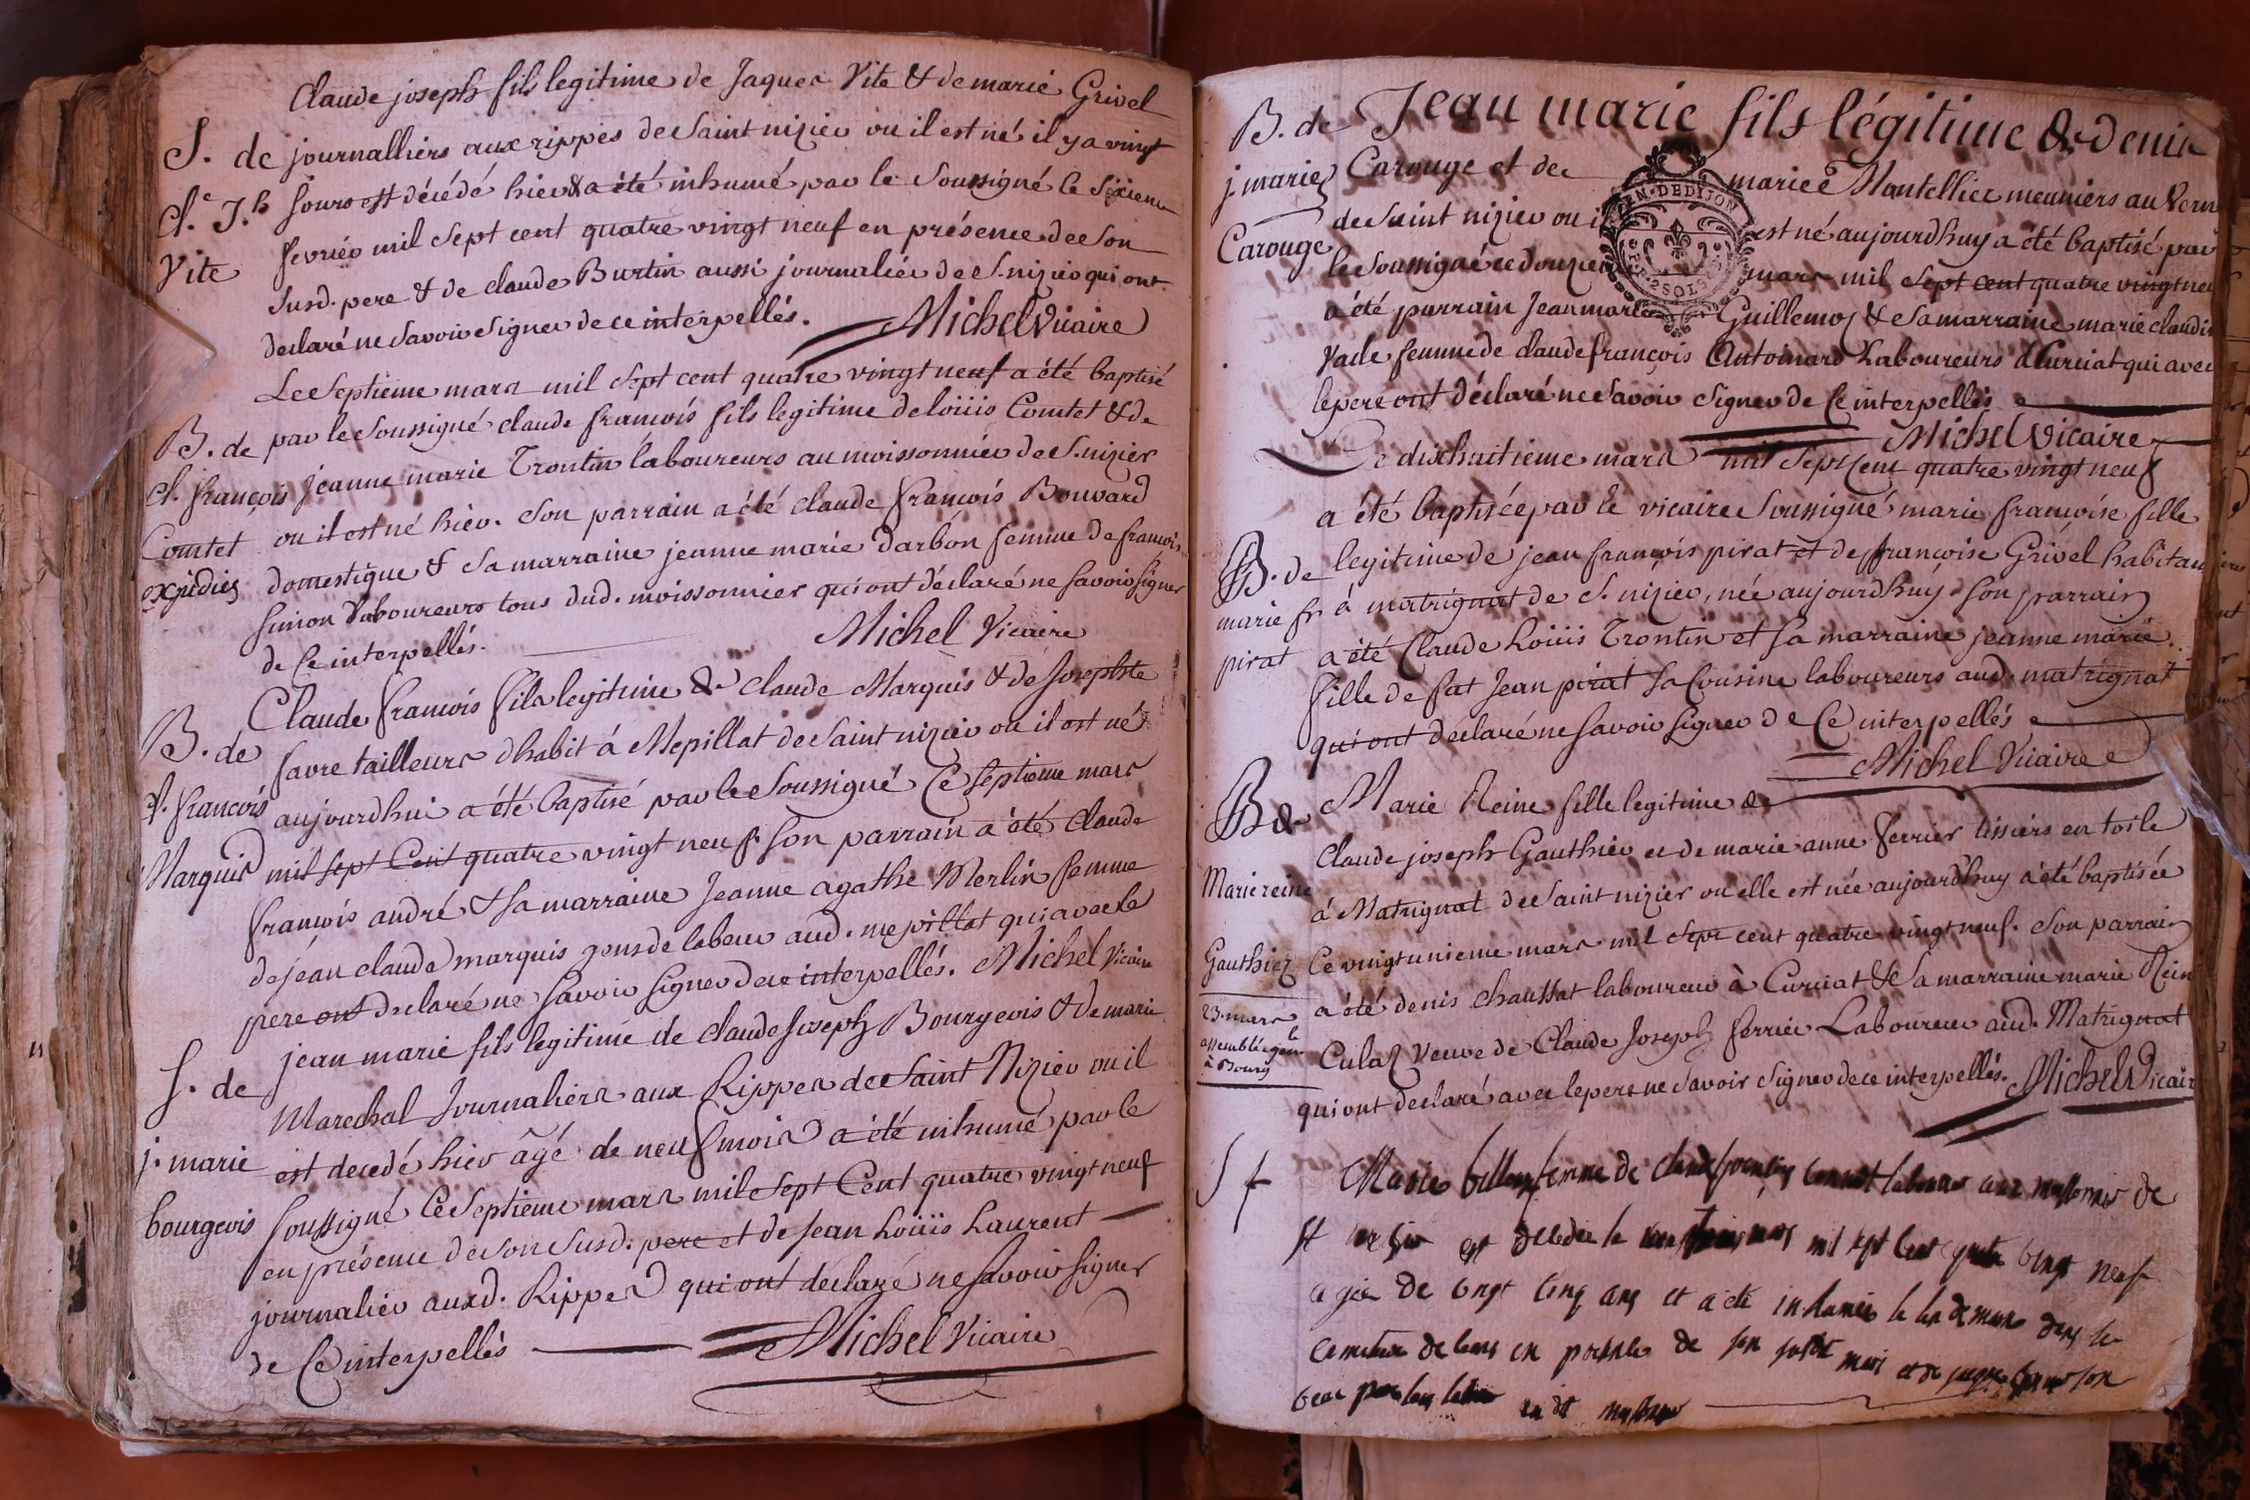 Claude joseph fils legitime de Jaques Vite & de marie Grivel
S. de journalliers aux rippes de Saint nizier ou il est né il y a vingt
Cl.e J.h jours est décédé hier & a été inhumé par le Soussigné le Sixieme
Vite fevrier mil sept cent quatre vingt neuf en présence de Son
Susd. pere & de claude Burtin aussi journalier de S. nizier qui ont
declaré ne Savoir Signer de ce interpellés. Michel Vicaire
Le Septieme mars mil sept cent quatre vingt neuf a été baptisé
B. de par le Soussigné claude françois fils legitime de loüis Comtet & de
cl. françois jeanne marie Trontin laboureurs au moissonnier de S. nizier
Comtet ou il est né hier. Son parrain a été claude françois Bouvard
expédiés domestique & Sa marraine jeanne marie darbon femme de françois
Simon laboureurs tous dud. moissonnier qui ont déclaré ne Savoir Signer
de Ce interpellés. Michel Vicaire
Claude françois fils legitime de claude Marquis & de Josephte
B. de favre tailleurs d'habit à Mepillat de Saint nizier ou il est né
cl. françois aujourdhui a été baptisé par le Soussigné Ce Septieme mars
Marquis mil sept Cent quatre vingt neuf. Son parrain a été claude
françois andré & Sa marraine Jeanne agathe Merlin femme
de jean claude marquis gens de labeur aud. mepillat qui avec le
pere ont declaré ne Savoir Signer de ce interpellés. Michel Vicaire
jean marie fils legitime de claude joseph Bourgeois & de marie
S. de Marechal Journaliers aux Rippes de Saint Nizier ou il
j. marie est decedé hier âgé de neuf mois a été inhumé par le
bourgeois Soussigné Ce Septieme mars mil Sept Cent quatre vingt neuf
en présence de Son Susd. pere et de jean Loüis Laurent
journalier auxd. Rippes qui ont déclaré ne Savoir Signer
de Ce interpellés Michel Vicaire
B. de Jean marie fils légitime de denis
j. marie Carouge et de marie Mantellier meuniers au
Carouge de Saint nizier ou il est né aujourdhuy a été baptisé par
le Soussigné ce douzieme mars mil Sept cent quatre vingt neuf
GEN. DE DIJON
2 SOLS
a été parrain Jean marie Guillemos & Sa marraine marie claudine
Vade femme de claude françois Antoinard Laboureurs à Curciat qui avec
le pere ont déclaré ne Savoir Signer de Ce interpellés
Michel Vicaire
Ce dixhuitieme mars mil Sept Cent quatre vingt neuf
a été baptisée par le vicaire Soussigné marie françoise fille
B. de legitime de jean françois pirat et de françoise Grivel habitans
marie fr. à matrignat de S. nizier, née aujourdhuy. Son parrain
pirat a été Claude Loüis Trontin et Sa marraine jeanne marie
fille de fut Jean pirat Sa Cousine laboureurs aud. matrignat
qui ont déclaré ne Savoir Signer de Ce interpellés
Michel Vicaire
B de Marie Reine fille legitime de
Claude joseph Gauthier et de marie anne Ferrier tissiers en toile
Marie reine à Matrignat de Saint nizier ou elle est née aujourdhuy a été baptisée
Gauthier Ce vingtunieme mars mil Sept cent quatre vingt neuf. Son parrain
23. mars a été denis chaussat laboureur à Curciat & Sa marraine marie Reine
assemblée gen.le à Bourg Culaz Veuve de Claude Joseph ferrier Laboureur aud. Matrignat
qui ont declaré avec le pere ne Savoir Signer de ce interpellés. Michel Vicaire
S f Marie femme de claude françois comtet laboureur aux de
St nizier est decedée le mars mil sept cent quatre vingt neuf
agée de vingt cinq ans et a été inhumée le lendemain dans le
cemetiere de ceans en présence de son susdit mari et de son
beau pere